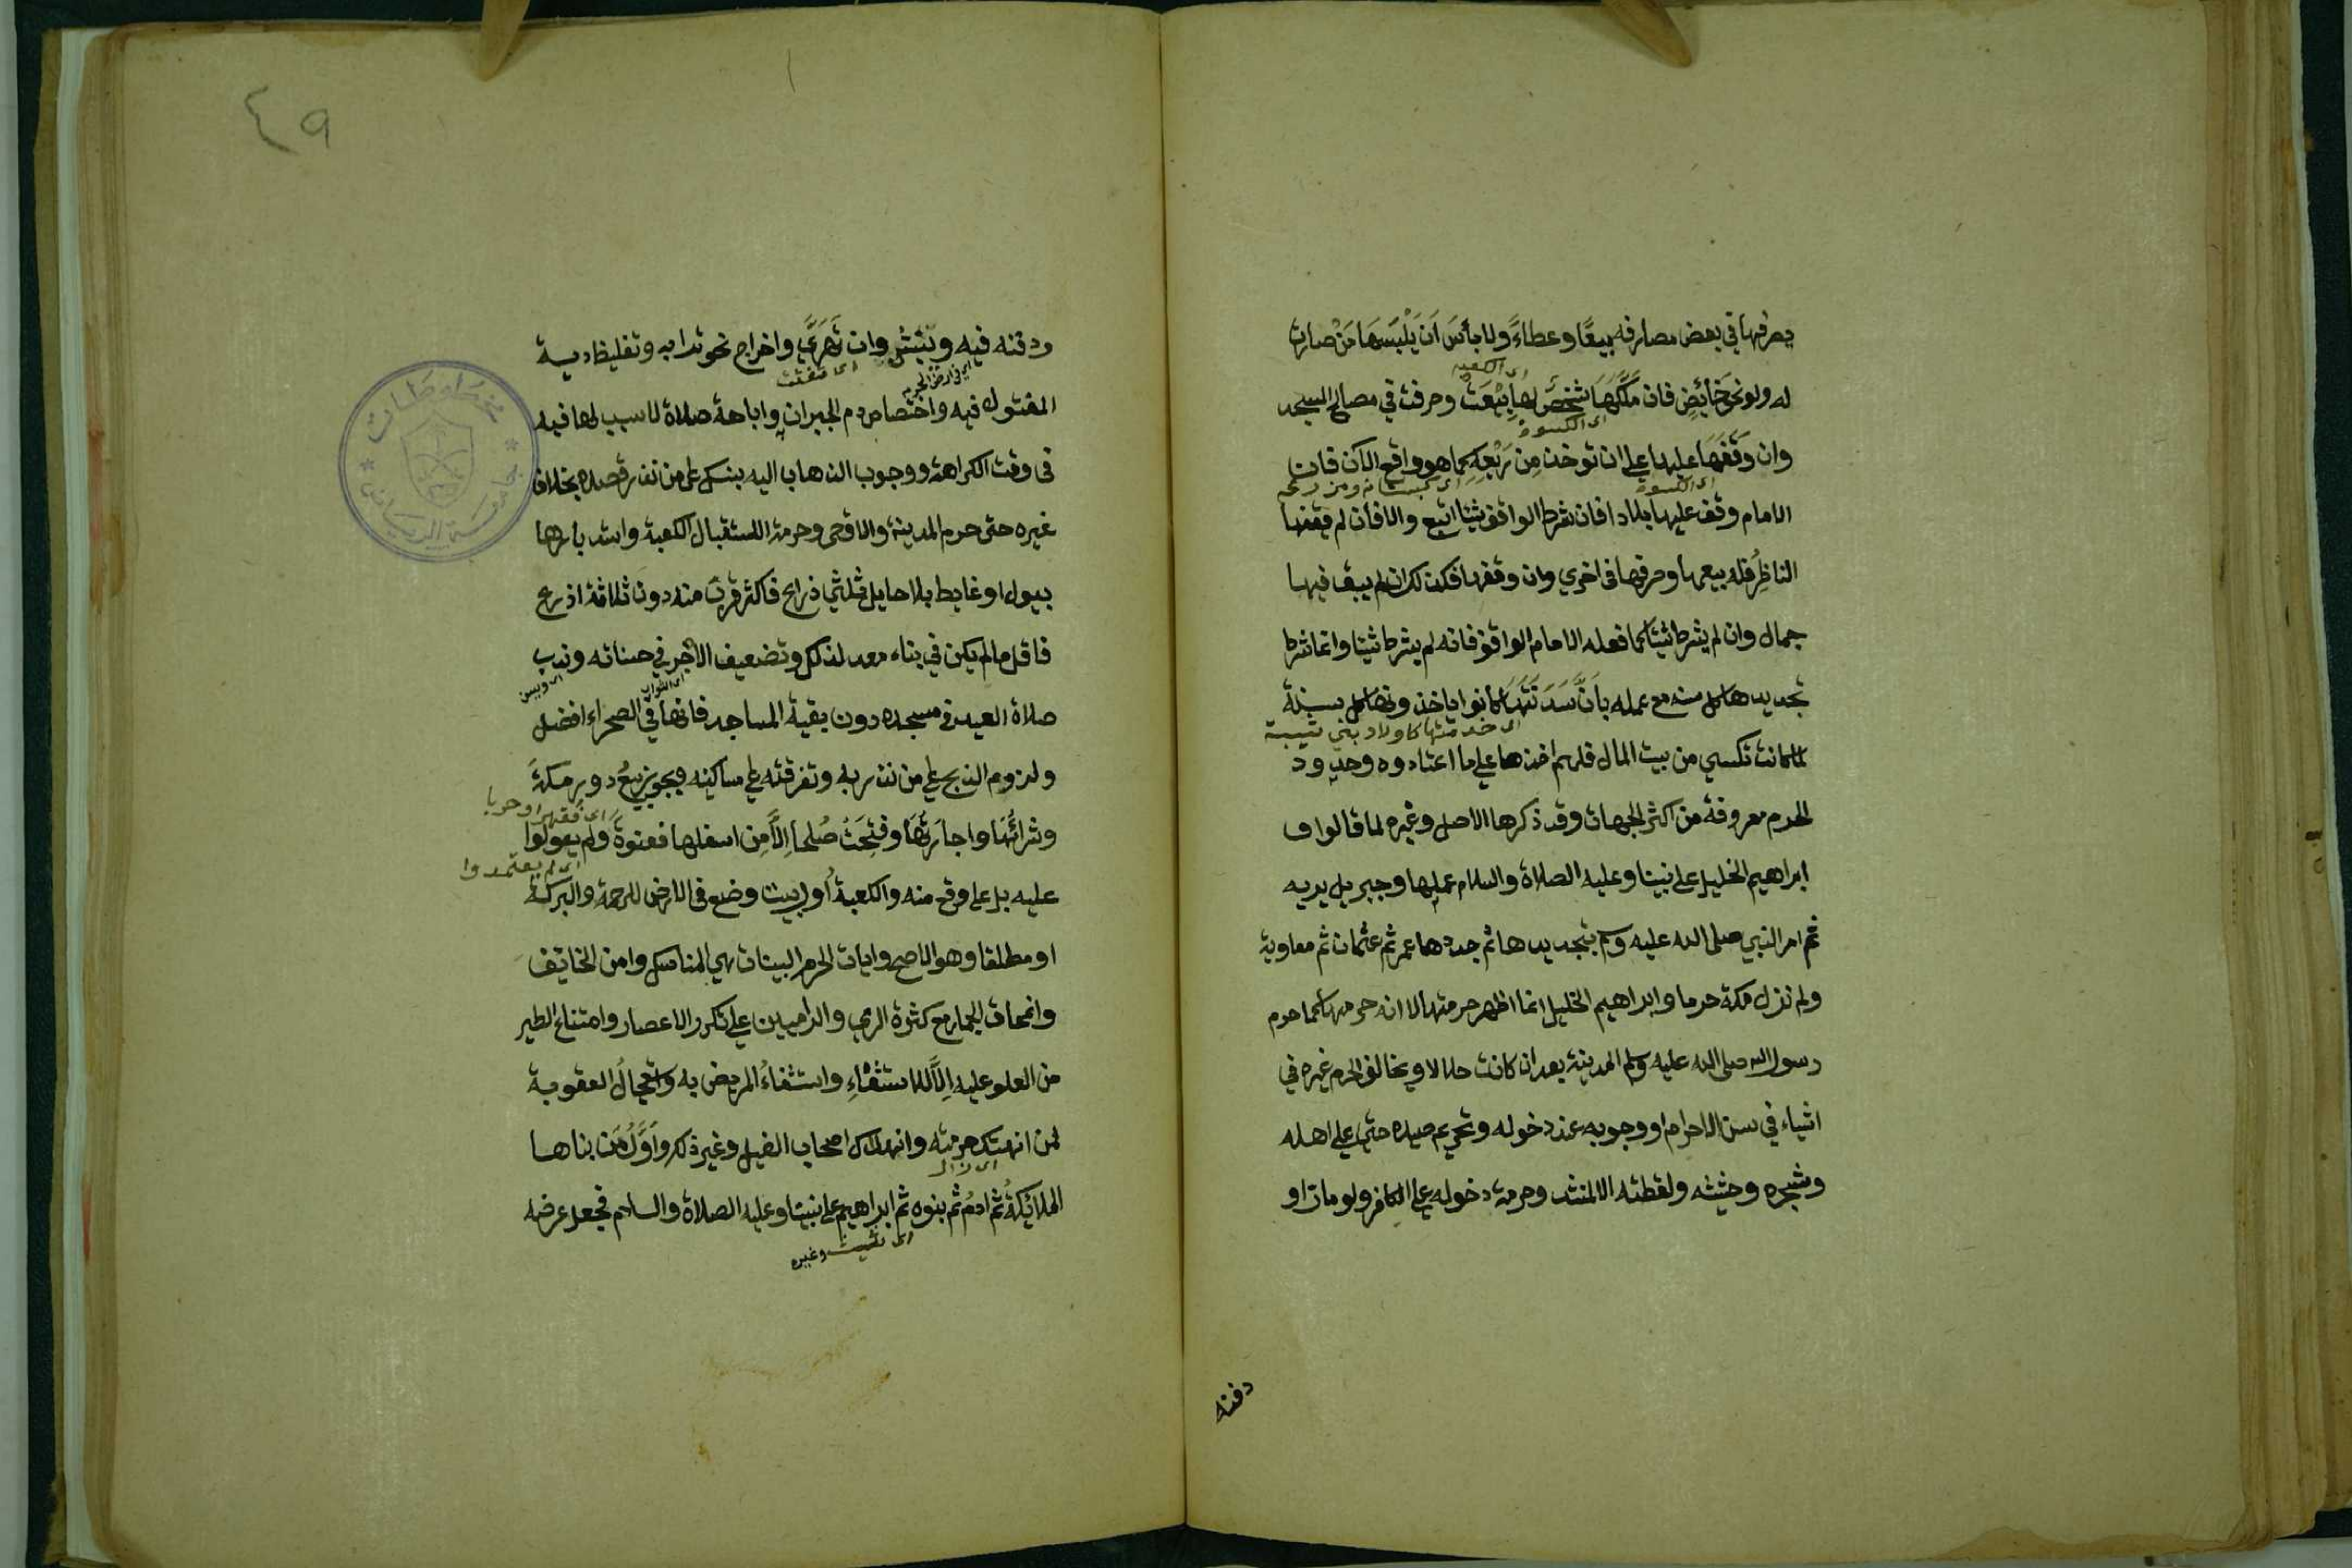 يصرفها في بعض مصارفه بيعًا وعطاءً ولا بأسَ اَن يَلْبَسَهَا مَنْ صارت
له ولو نحو حَائِضٍ فان مَلَّكَهَا شخصٌ لها بِيْعَتْ وصرفت في مصالح المسجد
اى الكعبه
وان وَقَفَهَا عليها على ان توخذ مِن رَيْعِهِ كما هو واقع الآن فان
اى الكسوة
الامام وقف عليها بلادا فان شرط الواقف شيئا اتبع والا فان لم يقفها
اى الكسوة
الناظِرُ فله بيعها وصرفها في اخري وان وقفها فكذلك ان لم يبق فيها
جمال وان لم يشرط شيئا كما فعله الامام الواقف فانه لم يشرط شيئا وانما شرط
تجديدها كل سنه مع عمله بِاَنَّ سَدَنَتَهَا كانوا ياخذونها كل سنة
اى خدمتها كاولاد بني شيبة
لما كانت تكسي من بيت المال فلهم اخذها على ما اعتادوه وحدود
الحرم معروفة من اكثر الجهات وقد ذكرها الاصل وغيره لما قالوا ف
ابراهيم الخليل على نبينا وعليه الصلاة والسلام عملها وجبريل يريه
ثم امر النبي صلى الله عليه وسلم بتجديدها ثم جددها عمر ثم عثمان ثم معاوية
ولم تزل مكة حرما وابراهيم الخليل انما اظهر حرمتها لا انه حرمها كما حرم
رسول الله صلى الله عليه وسلم المدينة بعد ان كانت حلالا ويخالف الحرم غيره في
اشياء في سن الاحرام او وجوبه عند دخوله وتحريم صيده حتى على اهله
وشجره وحشيشه ولقطته الا لمنشد وحرمة دخوله على الكافر ولو مات او
دفنه
٤٩
ودفنه فيه ونَبْشُ وان تَهَرَّي واخراج نحو ترابه وتغليظ دية
اى تفتت
المقتول فيه واختصاص دم الجبران واباحة صلاة لا سبب لها فيه
اي في ارض الحرم
في وقت الكراهة ووجوب الذهاب اليه بنسك على من نذر قصده بخلاف
غيره حتى حرم المدينة والاقصى وحرمة استقبال الكعبة واستدبارها
ببول او غايط بلا حايل ثلثي ذراع فاكثر قريب منه دون ثلاثة اذرع
فاقل ما لم يكن في بناء معد لذلك وتضعيف الاجر في حسناته وندب
اى ويسن
صلاة العيد في مسجده دون بقية المساجد فانها في الصحراء افضل
اى الثواب
ولزوم الذبح على من نذر به وتفرقته على مساكينه ويجوز بيعُ دور مكةَ
وشرائُها واجارتُهَا وفُتِحَتْ صُلحاً اِلاَّ مِن اسفلها فعنوةً ولم يعولوا
اى قهرا وحربا
عليه بل على وقع منه والكعبةُ أول بيت وضع في الارض للرحمة والبركة
اى لم يعتمدوا
او مطلقا وهو الاصح وايات الحرم البينات هي المناسك وامن الخائف
وانمحاق الجمار مع كثرة الرمي والراميين على تكرر الاعصار وامتناع الطير
من العلو عليه اِلاَّ للاستشفاءِ واستشفاءُ المريض به وتعجيلُ العقوبة
لمن انتهك حرمته وانهلاك اصحاب الفيل وغير ذلك واَوَّلُ مَن بناها
اى ازال
الملائكةُ ثم ادمُ ثم بنوه ثم ابراهيم على نبينا وعليه الصلاة والسلام فجعل عرضه
اى شيث وغيره